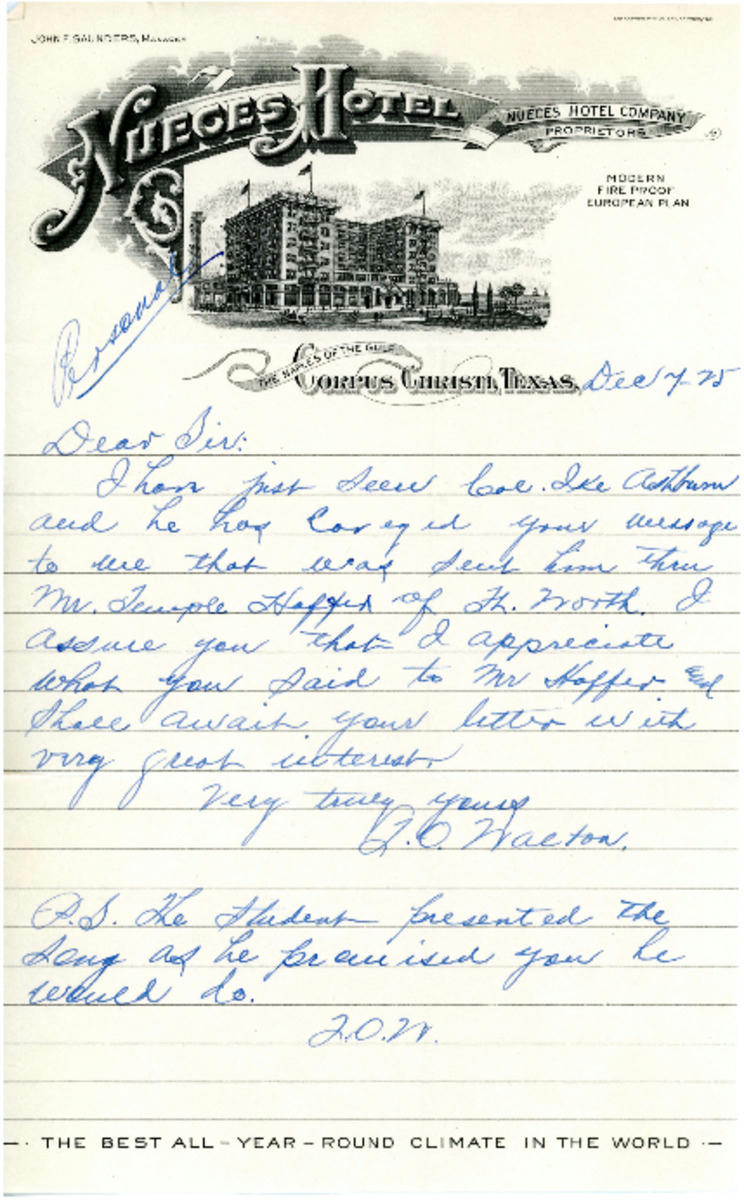 JOHN F. SAUNDERS, MANAGER
NUECES HOTEL
NUECES HOTEL COMPANY
PROPRIETORS
MODERN
FIRE PROOF
EUROPEAN PLAN
Personal
THE NAPLES OF THE GULF
CORPUS CHRISTI, TEXAS, Dec 7-25
Dear Sir:
I have just seen Col. Ike Ashburn
and he has conveyed your message
to me that was sent him thru
Mr. Temple Hoffer of Ft. Worth. I
assure you that I appreciate
what you said to Mr Hoffer and
shall await your letter with
very great interest.
Very truly yours
T.O. Walton.
P.S. The student presented the
song as he promised you he
would do.
T.O.W.
THE BEST ALL-YEAR-ROUND CLIMATE IN THE WORLD